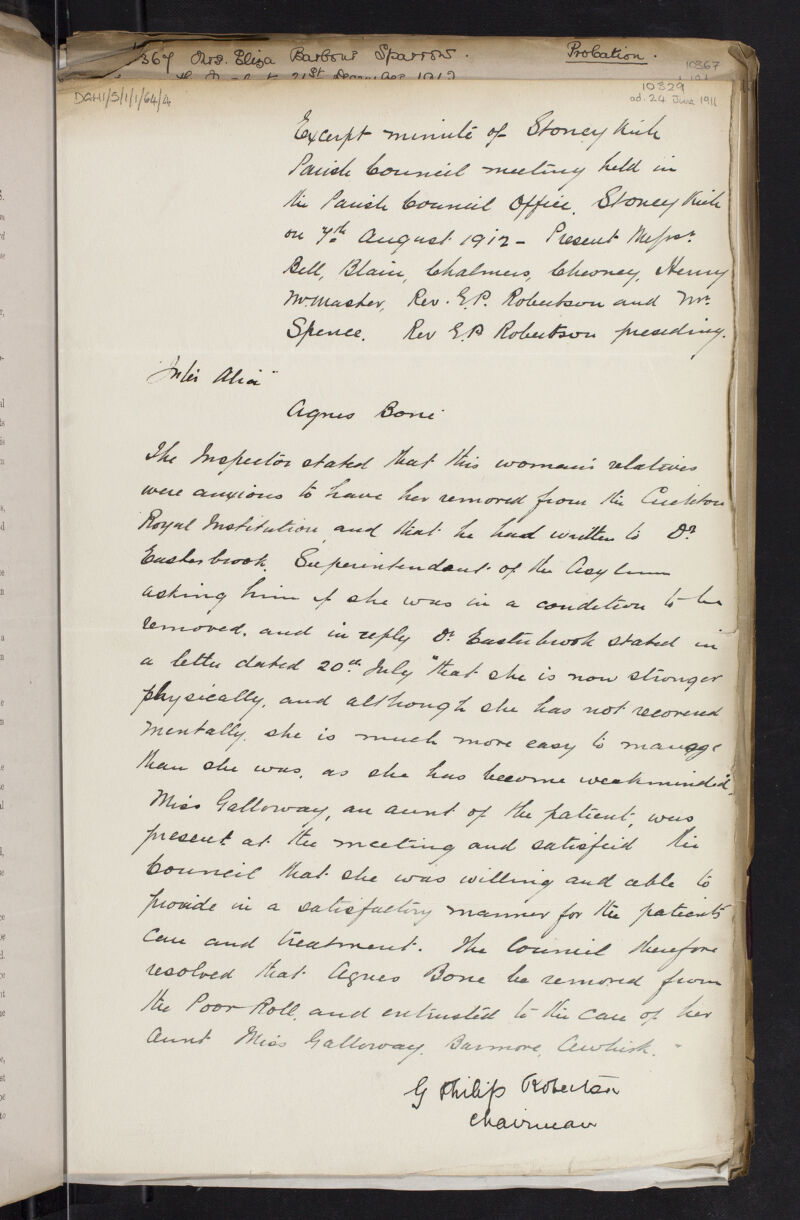 367 Mrs. Eliza Barbour Sparrow. Probation.
10367
21st December 1912
10329
DGH1/5/1/1/64/4 ad. 24 June 1911
Excerpt minute of Stoneykirk
Parish Council meeting held in
the Parish Council Office, Stoneykirk
on 7th August 1912 - Present Messrs.
Bell, Blair, Chalmers, Henry
McMaster, Rev. G.P. Robertson and Mr.
Spence. Rev G.P. Robertson presiding.
"Inter Alia"
Agnes Bone
The Inspector stated that this woman's relatives
were anxious to have her removed from the Crichton
Royal Institution, and that he had written to Dr.
Easterbrook, Superintendent of the Asylum
asking him if she was in a condition to be
removed, and in reply Dr. Easterbrook stated in
a letter dated 20th July "that she is now stronger
physically, and although she has not recovered
mentally, she is much more easy to manage
than she was, as she has become weakminded".
Miss Galloway, an aunt of the patient, was
present at the meeting and satisfied the
Council that she was willing and able to
provide in a satisfactory manner for the patient's
care and treatment. The Council therefore
resolved that Agnes Bone be removed from
the Poor Roll, and entrusted to the care of her
Aunt Miss Galloway, Barmore,
G Philip Robertson
Chairman